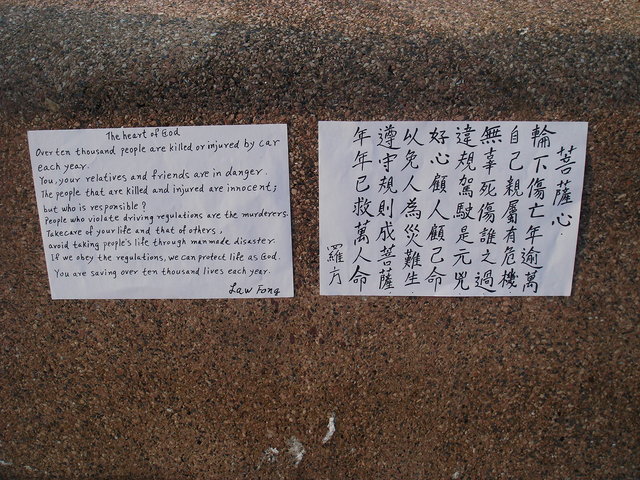 The heart of God
Over ten thousand people are killed or injured by car
each year.
You, your relatives and friends are in danger.
The people that are killed and injured are innocent;
but who is responsible?
People who violate driving regulations are the murderers.
Takecare of your life and that of others,
avoid taking people's life through manmade disaster.
If we obey the regulations, we can protect life as God.
You are saving over ten thousand lives each year.
Law Fong
菩薩心
輪下傷亡年逾萬
自己親屬有危機
無辜死傷誰之過
違規駕駛是元兇
好心顧人顧己命
以免人為災難生
遵守規則成菩薩
年年已救萬人命
羅方